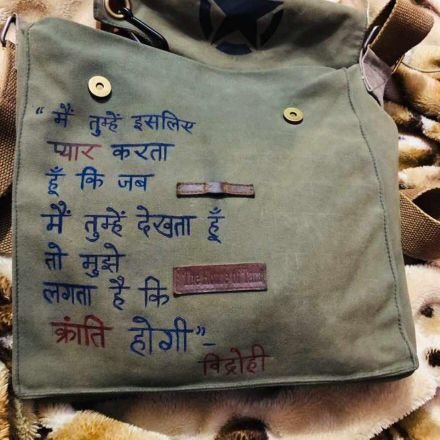 “मैं तुम्हें इसलिए
प्यार करता
हूँ कि जब
मैं तुम्हें देखता हूँ
तो मुझे
लगता है कि
क्रांति होगी”-
विद्रोही